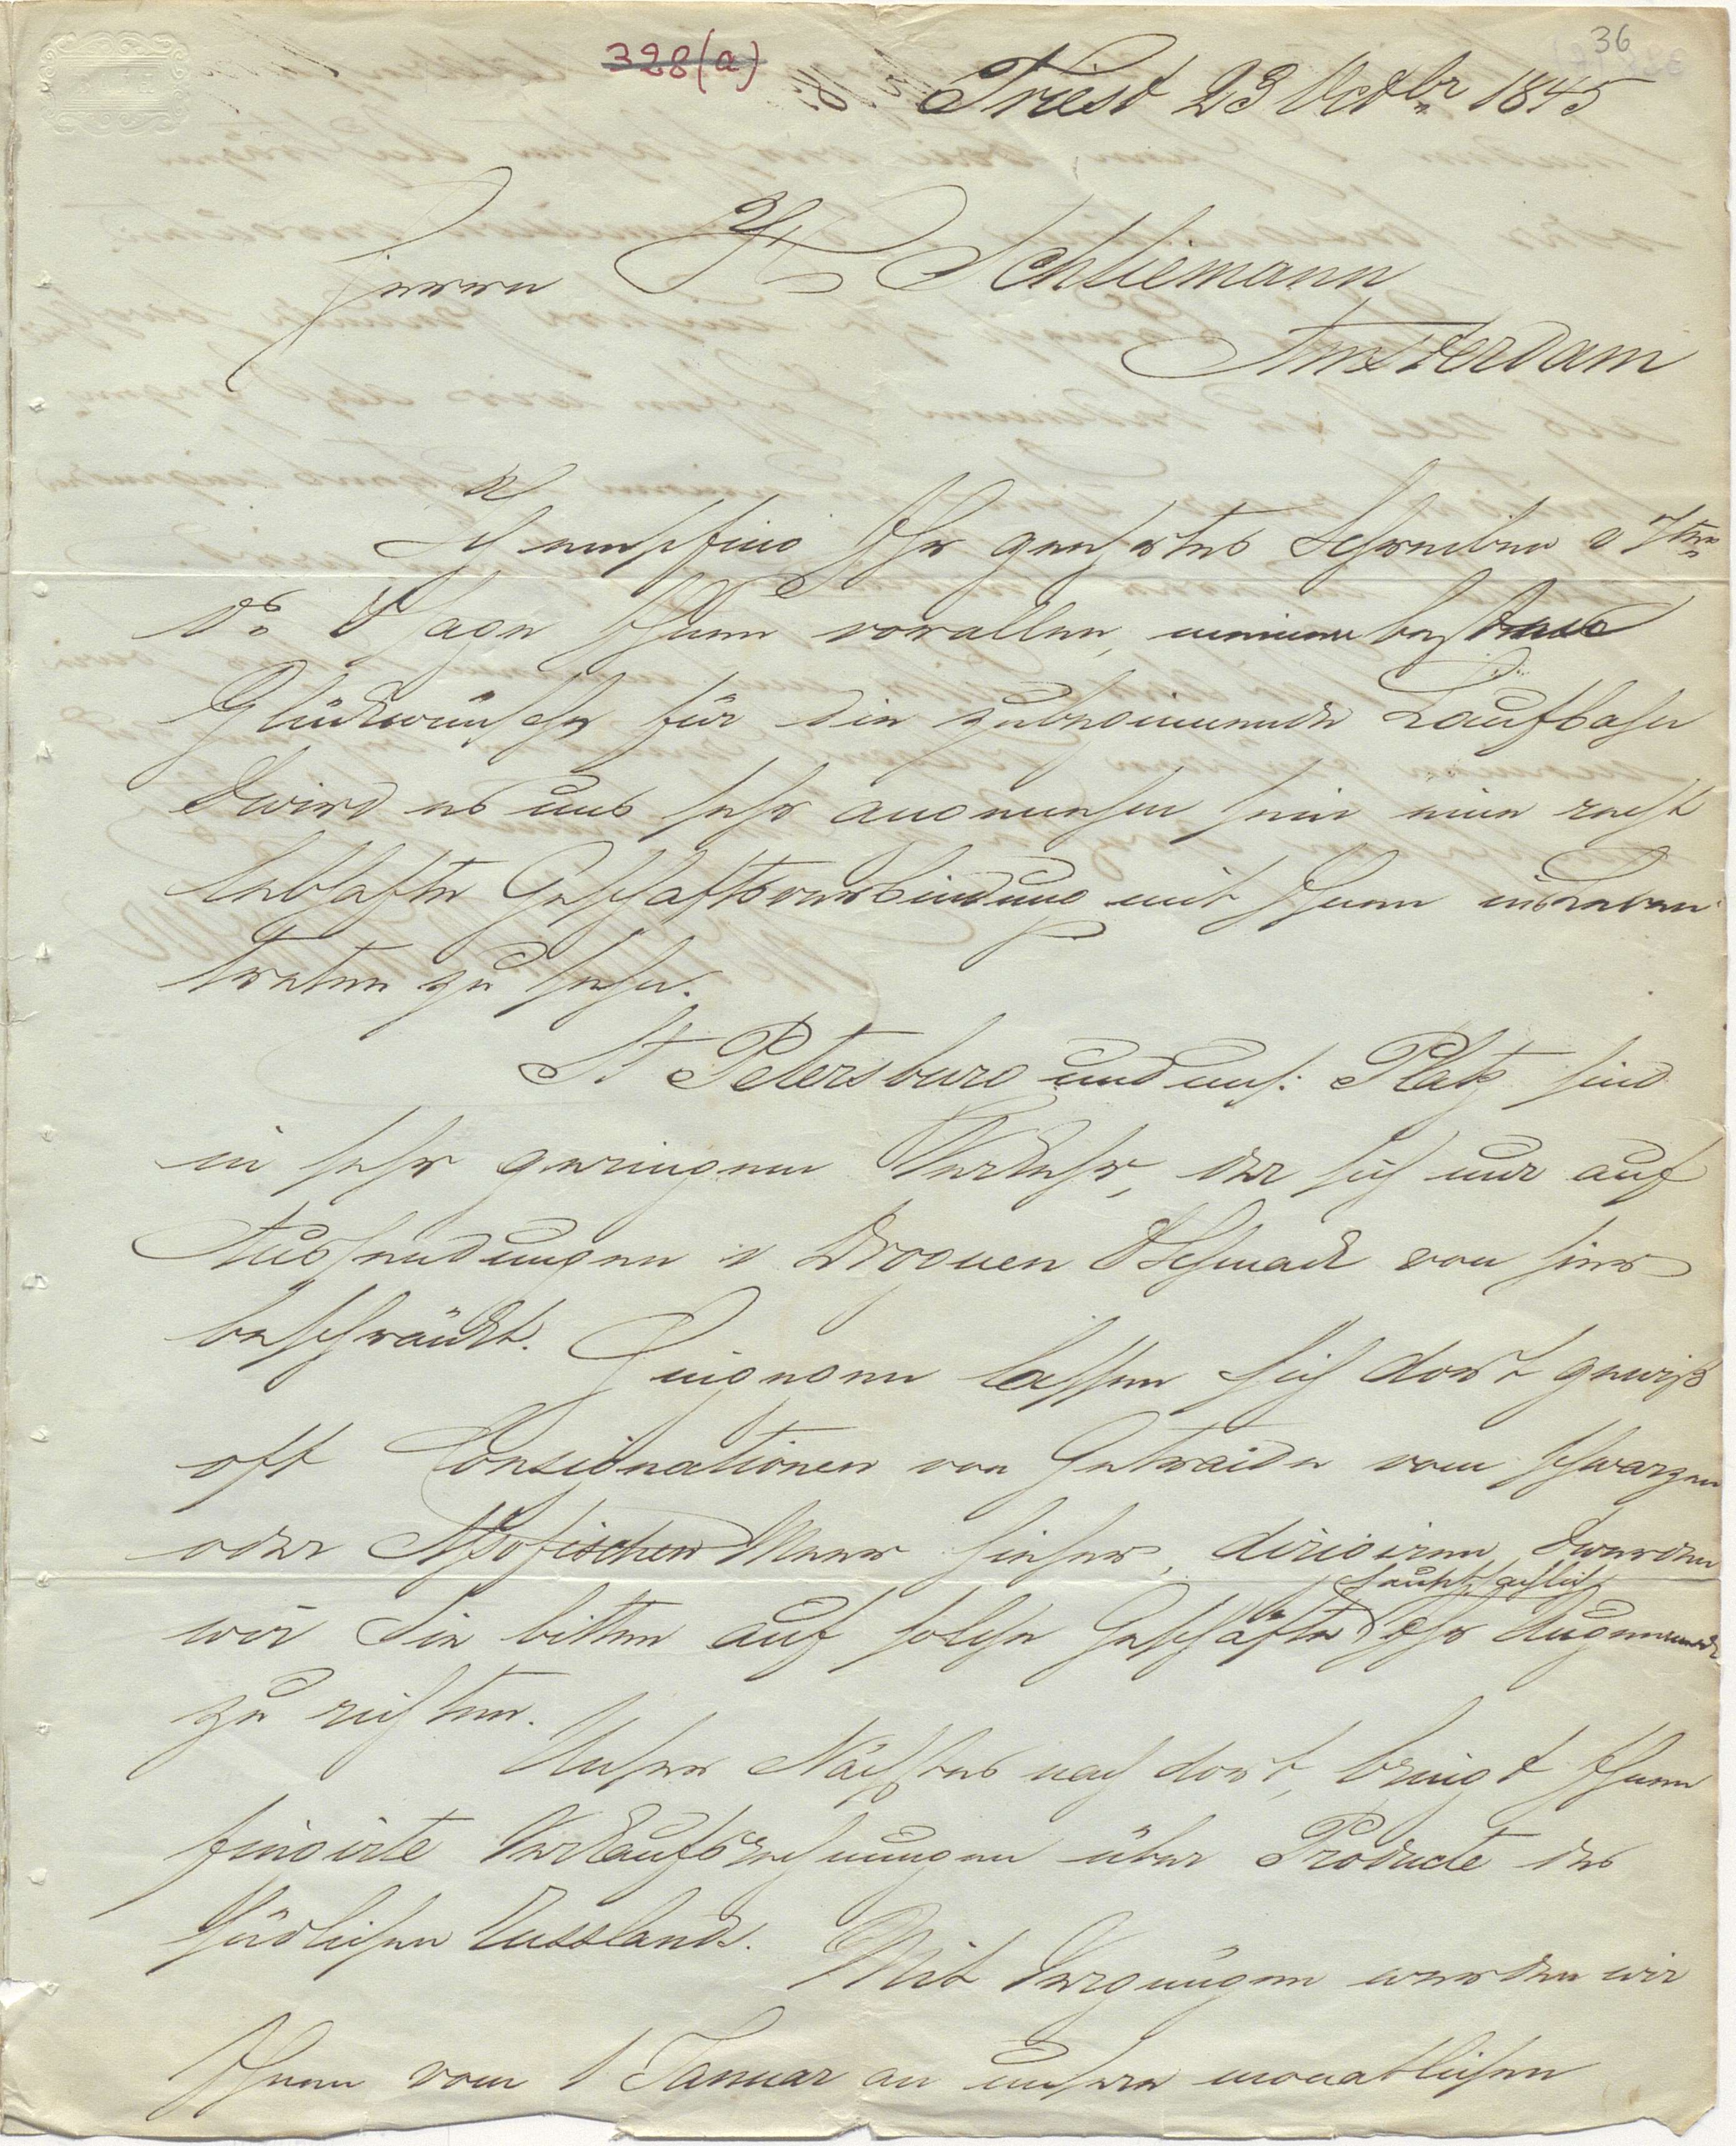 36
328(a)
Triest 23 Octbr 1845
Herrn H Schliemann
Amsterdam
Ich empfing Ihr geehrtes Schreiben v 7ten
do & sage Ihnen vor allem, meine besten
Glückwünsche für die zubeginnende Laufbahn
& wird es uns sehr angenehm sein eine recht
lebhafte Geschäftsverbindung mit Ihnen ins Leben
treten zu sehen.
St Petersburg und uns: Platz sind
in sehr geringem Verkehr, der sich nur auf
Aussendungen v Droguen & Schmack von hier
beschränkt. Hingegen lassen sich dort gewiß
oft Consignationen von Getraide vom schwarzen
oder Asofischen Meere hieher dirigiren, & werden
wir Sie bitten auf solche Geschäfte hauptsächlich Ihr Augenmerk
zu richten.
Unser Nächstes nach dort, bringt Ihnen
fingirte Verkaufsrechnungen über Producte des
südlichen Russlands.
Mit Vergnügen werden wir
Ihnen vom 1 Januar an unsern monatlichen